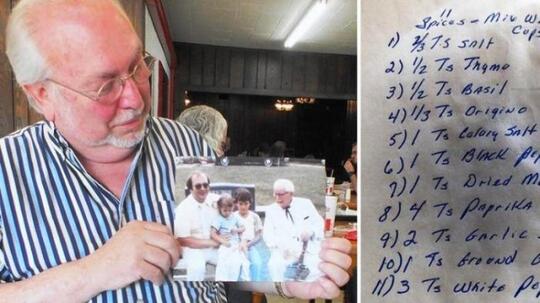 11
Spices - Mix W
Cups
1) 2/3 Ts Salt
2) 1/2 Ts Thyme
3) 1/2 Ts Basil
4) 1/3 Ts Origino
5) 1 Ts Celary Salt
6) 1 Ts Black Pep
7) 1 Ts Dried M
8) 4 Ts Paprika
9) 2 Ts Garlic
10) 1 Ts Ground G
11) 3 Ts White Pe